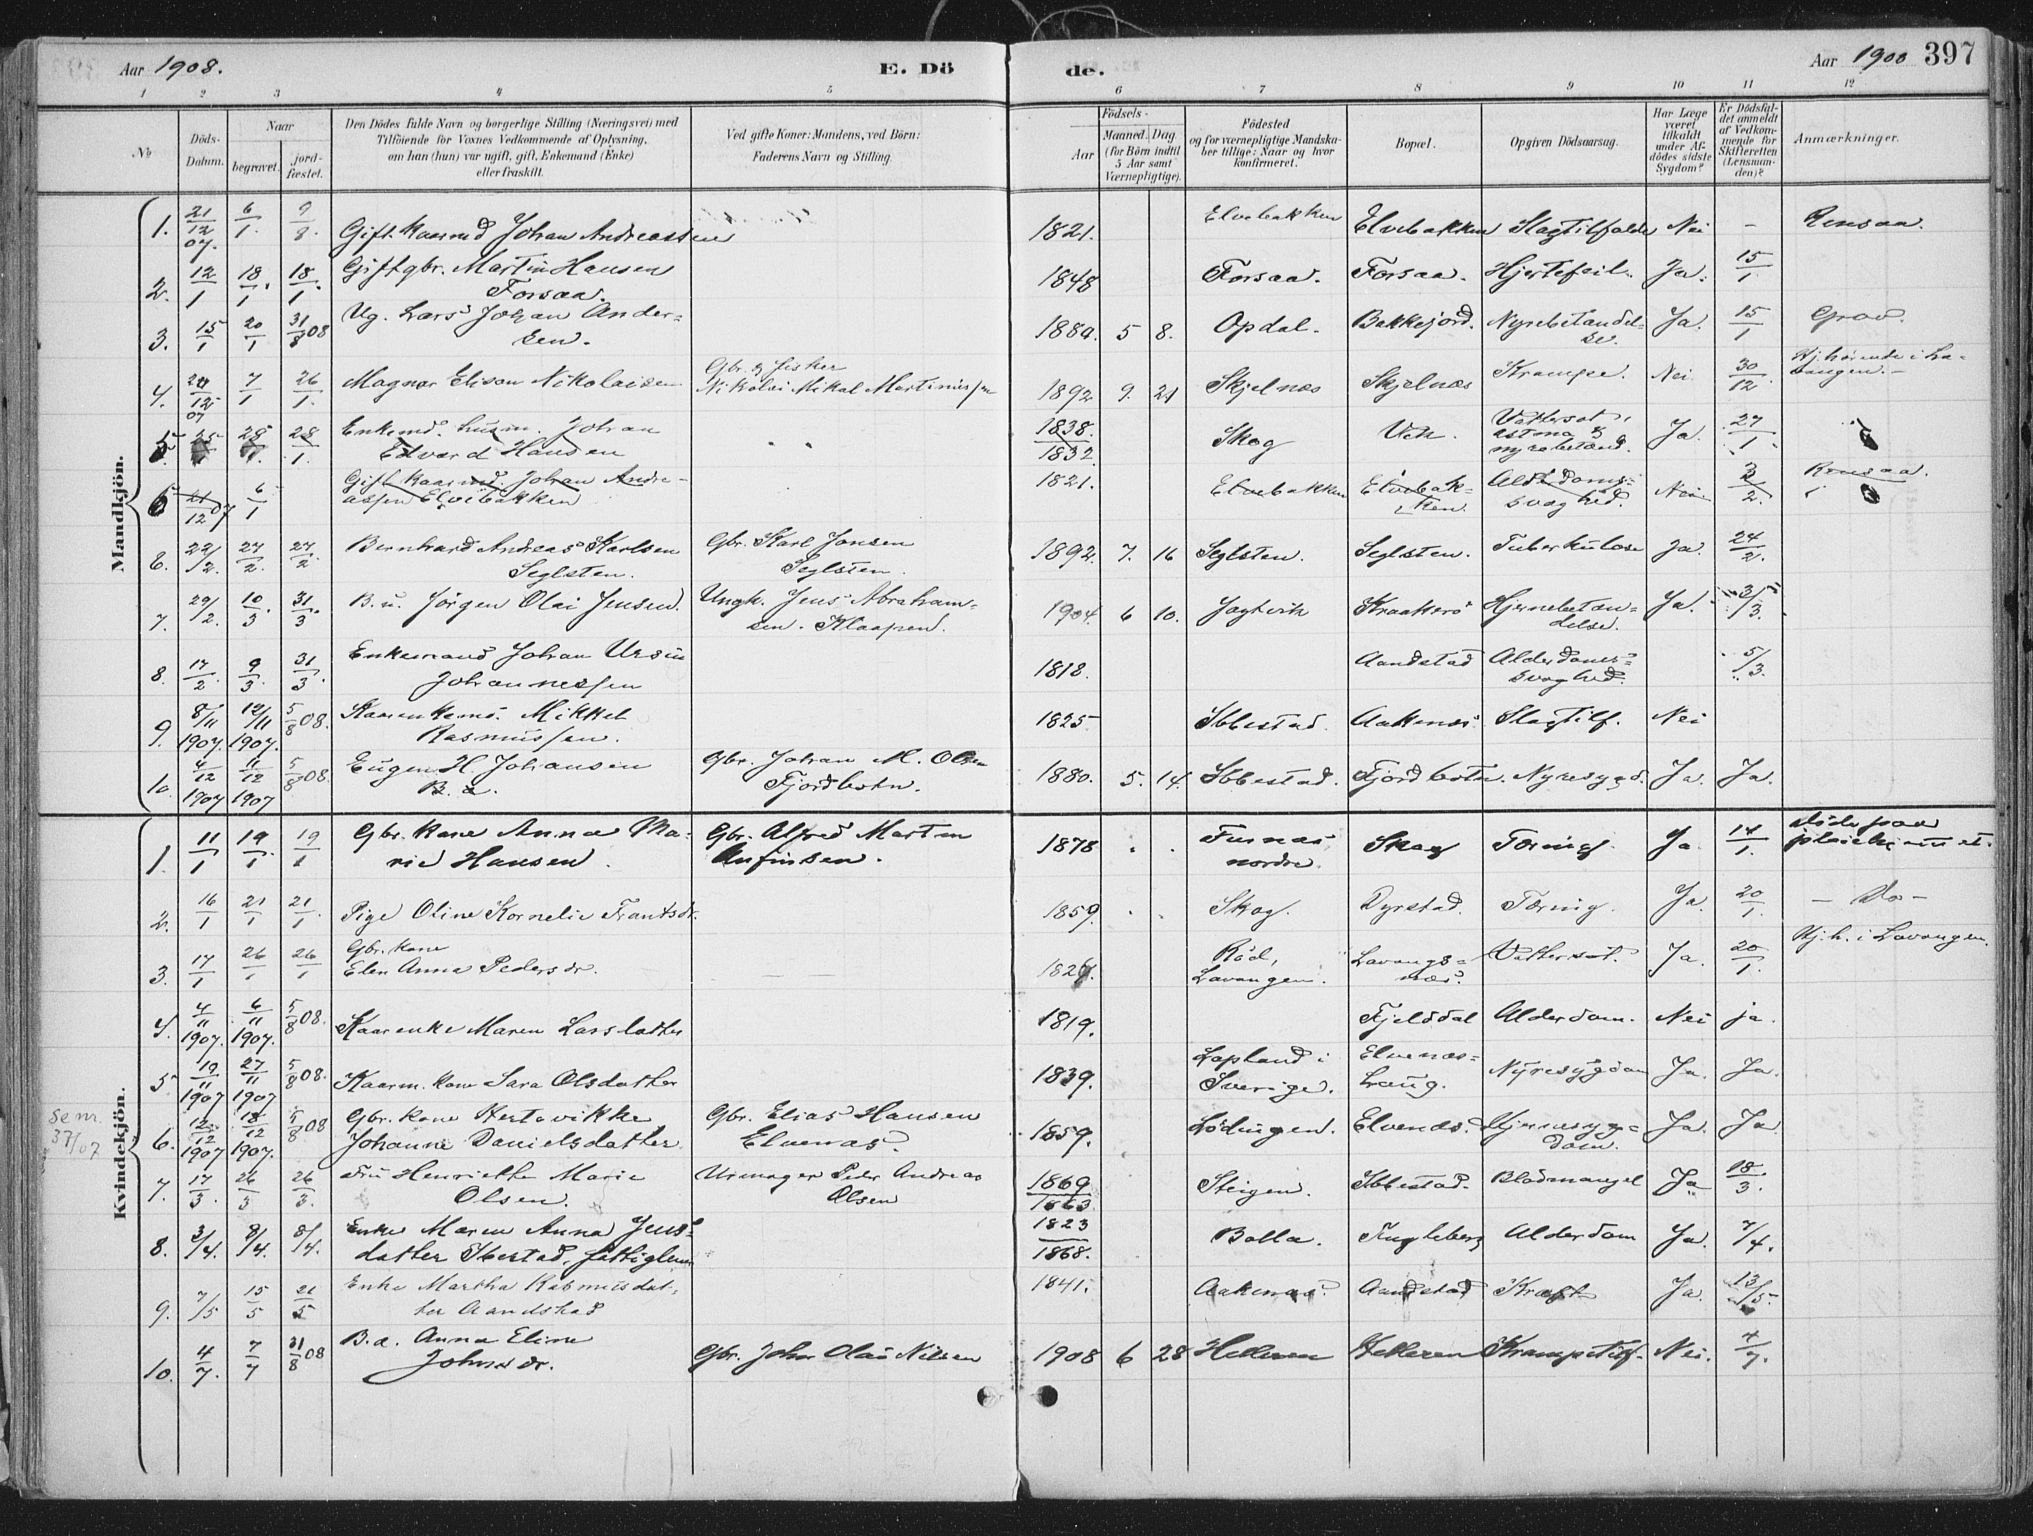 Aar 1908.
E. Dö
de.
Aar 1900
397
1 2 3 4 5 6 7 8 9 10 11 12
No
Döds-
Datum.
Naar
begravet.
jord-
fæstet.
Den Dödes fulde Navn og borgerlige Stilling (Næringsvei) med
Tilföiende for Voxnes Vedkommende af Oplysning,
om han (hun) var ugift, gift, Enkemand (Enke)
eller fraskilt.
Ved gifte Koner: Mandens, ved Börn:
Faderens Navn og Stilling.
Födsels-
Aar
Maaned. Dag
(for Börn indtil
5 Aar samt
Værnepligtige).
Födested
og for værnepligtige Mandska-
ber tillige: Naar og hvor
konfirmeret.
Bopæl.
Opgiven Dödsaarsag.
Har Læge
været
tilkaldt
under Af-
dödes sidste
Sygdom?
Er Dödsfal-
det anmeldt
af Vedkom-
mende for
Skifteretten
(Lensman-
den)?
Anmærkninger.
Mandkjön.
1. 21/12 07. 6/1. 9/8. Gift Kaarmd Johan Andreassen 1821. Elvebakken Elvebakken Slagtilfælde Nei - Rensaa.
2. 12/1 18/1. 18/1. Gift gbr. Martin Hansen
Forsaa. 1848 Forsaa. Forsaa. Hjertefeil. Ja. 15/1
3. 15/1 20/1 31/8 08 Ug. Lars Johan Ander-
sen. 1880. 5 8. Opdal. Bakkejord. Nyrebetændel-
se. Ja. 15/1 Grov.
4. 12 07 7/1 26/1. Magnar Elison Nikolaisen Gbr. & fisker
Nikolai Mikal Martinussen 1892 9. 21 Skjelnæs Skjelnæs Krampe. Nei. 30/12. Hj. hörende i La-
vangen.-
5 28/1. Enkemd. husm. Johan
Edvard Hansen 1838.
1832 Skog Vik. Vattersot,
astma &
nyrebetænd. Ja. 27/1.
21/12 07 6/1 Gift Kaarmd. Johan Andre-
assen Elvebakken 1821. Elvebakken Elvebak-
ken. Alderdoms-
svaghed. Nei 3/2. Rensaa.
6. 22/2. 27/2. 27/2. Bernhard Andreas Karlsen
Seglsten. Gbr. Karl Jonsen
Seglsten. 1892. 7. 16 Seglsten. Seglsten. Tuberkulose Ja. 24/2.
7. 29/2. 10/3. 31/3. B. u. Jörgen Olai Jensen. Ungk. Jens Abraham-
sen. Klaapen. 1904. 6 10. Jagtvik Kraakerö Hjernebetæn-
delse. Ja. 3/3.
8. 17/2. 9/3. 31/3. Enkemand Johan Ursin
Johannessen 1818. Aandstad Alderdoms-
svaghed. 5/3.
9. 8/11 1907. 12/11 1907. 5/8 08. Kaarenkemd. Mikkel
Rasmussen. 1825 Ibbestad. Aakenes Slagtilf. Nei
10. 4/12 1907 11/12 1907 5/8 08. Eugen H. Johansen
B. æ. Gbr. Johan M. Olsen
Fjordbotn. 1880. 5. 14. Ibbestad. Fjordbotn. Nyresygd. Ja Ja.
Kvindekjön.
1. 11/1 19/1. 19/1 Gbr. kone Anna Ma-
rie Hansen. Gbr. Alfred Martin
Anfinsen. 1878 Furnæs
nordre. Skog Tæring. Ja. 14/1. Döde paa
pleiehjemmet.
2. 16/1 21/1 21/1. Pige Oline Kornelie Frantsdr. 1859. Skog. Dyrstad. Tæring. Ja. 20/1. - Do -
3. 17/1 26/1 26/1 Gbr. kone
Elen Anna Pedersdr. Röd,
Lavangen. Lavangs-
næs. Vattersot. Ja. 20/1. Hj. h. i Lavangen.
4. 4/11 1907. 6/11 1907. 5/8 08. Kaarenke Maren Larsdatter 1819. Fjelddal Alderdom. Nei ja.
5 19/11 1907 27/11 1907 5/8 08. Kaarm. kone Sara Olsdatter 1839. Lapland i
Sverige. Elvenæs-
Lang. Nyresygdom Ja. Ja.
se nr.
37/07
6. 12/12 1907 18/12 1907. 5/8 08 Gbr. kone Hertevikke
Johanne Danielsdatter Gbr. Elias Hansen
Elvenæs. 1859. Lödingen. Elvenæs. Hjernesyg-
dom. Ja. Ja.
7. 17/3. 26/3 26/3. Fru Henriette Marie
Olsen. Urmager Peder Andreas
Olsen 1869
1863 Steigen. Ibbestad. Blodmangel Ja 18/3.
8. 3/4. 8/4. 8/4. Enke Maren Anna Jens-
datter Ibestad, fattiglem 1823
1868. Bolla. Engleberg Alderdom Ja. 7/4.
9. 7/5 15/5 21/5 Enke Martha Rasmusdat-
ter Aandstad 1841. Aakenæs Aandstad Kræft Ja. 13/5.
10. 4/7. 7/7 31/8 08 B. æ. Anna Eline
Johnsdr. Gbr. John Olai Nilsen 1908 6 28 Helleren Helleren Krampetilf. Nei. 4/7.